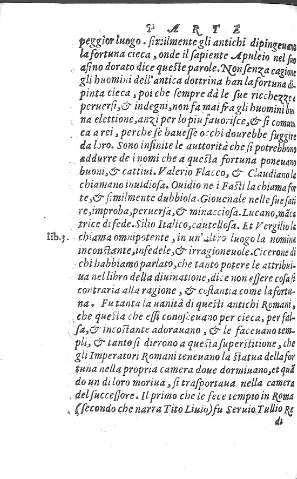 PARTE
peggior luogo. similmente gli antichi dipingeuano
la fortuna cieca, onde il sapiente Apuleio nel suo
asino dorato dice queste parole. Non senza cagione
gli huomini dell'antica dottrina han la fortuna di-
pinta cieca, poi che sempre dà le sue ricchezze a
peruersi, & indegni, non fa mai fra gli huomini buo
na elettione, anzi per lo piu fauorisce, & si comuni
ca a rei, perche se hauesse occhi dourebbe fuggire
da loro. Sono infinite le autorità che si potrebbono
addurre de i nomi che a questa fortuna poneuano
buoni, & cattiui. Valerio Flacco, & Claudiano la
chiamano inuidiosa. Ouidio ne i Fasti la chiama for
te, & similmente dubbiosa. Giouenale nelle sue sati
re, improba, peruersa, & minacciosa. Lucano, mãca
trice di fede. Silio Italico, cautelosa. Et Vergilio la
lib. 5. chiama omnipotente, in un'altro luogo la nomina
inconstante, infedele, & irragioneuole. Cicerone di
chi habbiamo parlato, che tanto potere le attribui-
ua nel libro della diuinatione, dice non essere cosa sì
contraria alla ragione, & constantia come la fortu-
na. Fu tanta la uanità di questi antichi Romani,
che questa che essi conosceuano per cieca, per fal-
sa, & incostante adorauano, & le faceuano tem-
pli, & tanto si dierono a questa superstitione, che
gli Imperatori Romani teneuano la statua della for
tuna nella propria camera doue dormiuano, et quã
do un di loro moriua, si trasportaua nella camera
del successore. Il primo che le fece tempio in Roma
(secondo che narra Tito Liuio) fu Seruio Tullio Re
di